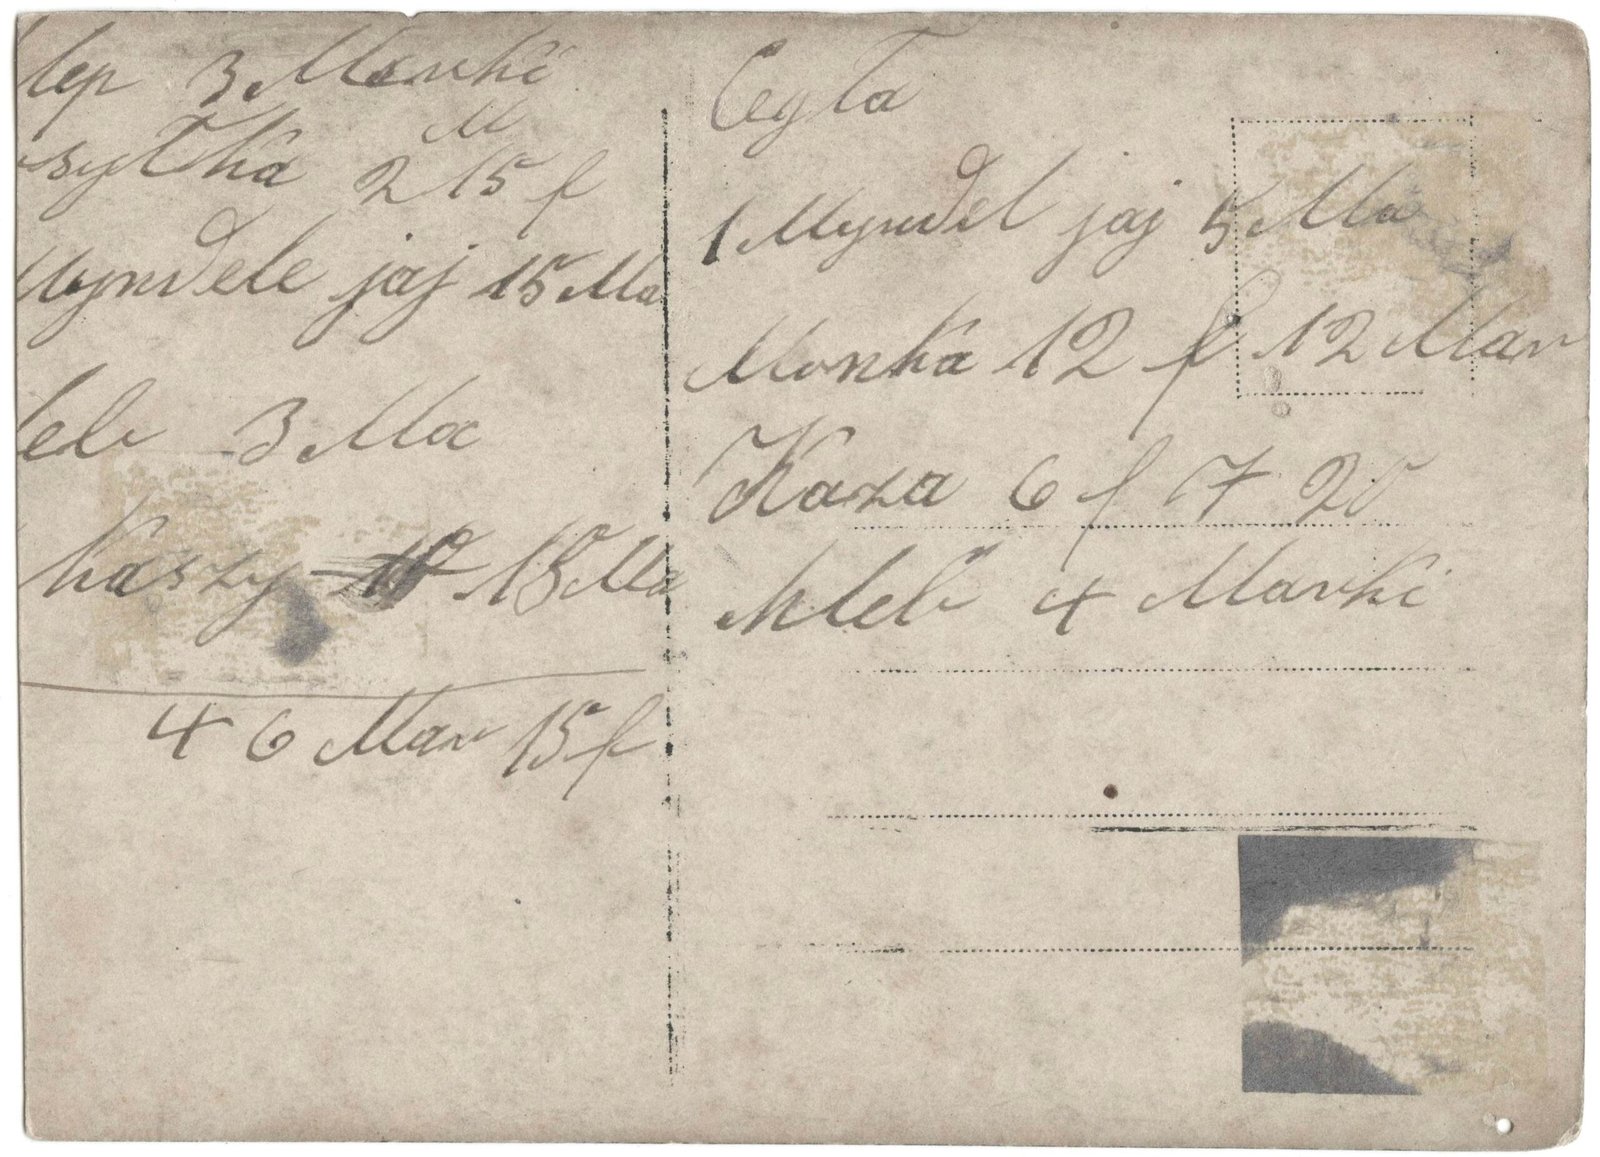 lep 3 Marki
M
szytka 2 15 f
Myndele jaj 15 Ma
leb 3 Ma
kaszy 15 Ma
46 Mar 15 f
Cegła
1 Myndel jaj 5 Ma
Monka 12 f 12 Mar
Kaza 6 f 7 20
hleb 4 Marki